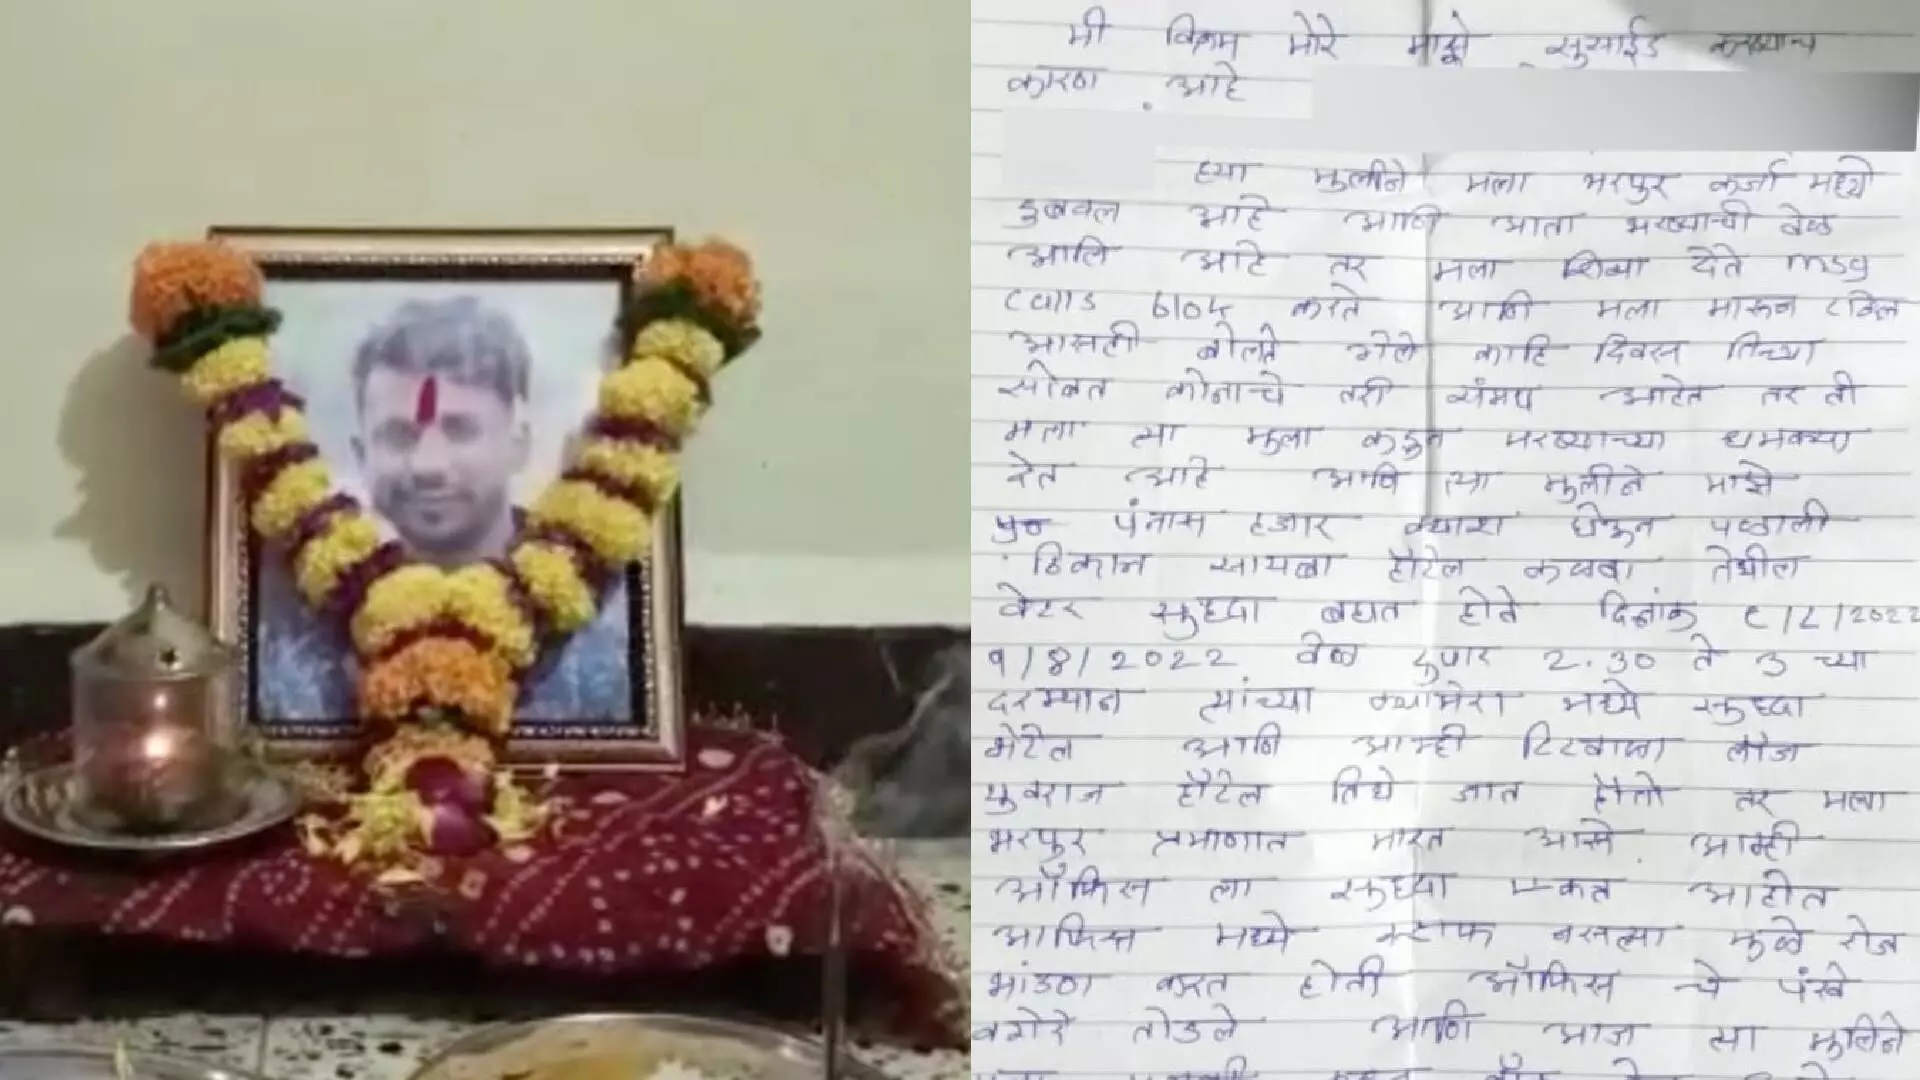 मी विक्रम मोरे माझे सुसाईड करण्याच
कारण आहे
ह्या मुलीने मला भरपुर कर्जा मध्ये
डुबवल आहे आणि आता भरण्याची वेळ
आलि आहे तर मला शिव्या देते msg
calls block करते आणि मला मारून टाकिल
आसही बोलते गेले काहि दिवस तिच्या
सोबत कोनाचे तरी संबध आहेत तर ती
मला त्या मुला कडुन मरण्याच्या धमक्या
देत आहे आणि त्या मुलीने माझे
पंनास हजार क्याश घेऊन पळाली
ठिकान सायबा हॉटेल कळवा तेथील
वेटर सुध्दा बघत होते दिनांक ८/८/2022
9/8/2022 वेळ दुपार 2.30 ते 3 च्या
दरम्यान त्यांच्या क्यामेरा मध्ये सुध्दा
भेटेल आणि आम्ही टिटवाळा लॉज
युवराज हॉटेल तिथे जात होतो तर मला
भरपुर प्रमाणात मारत आसे. आम्ही
ऑफिस ला सुध्दा एकत्र आहोत
आफिस मध्ये स्टाफ नसल्या मुळे रोज
भांडण करत होती ऑफिस चे पंखे
वगेरे तोडले आणि आज त्या मुलिने